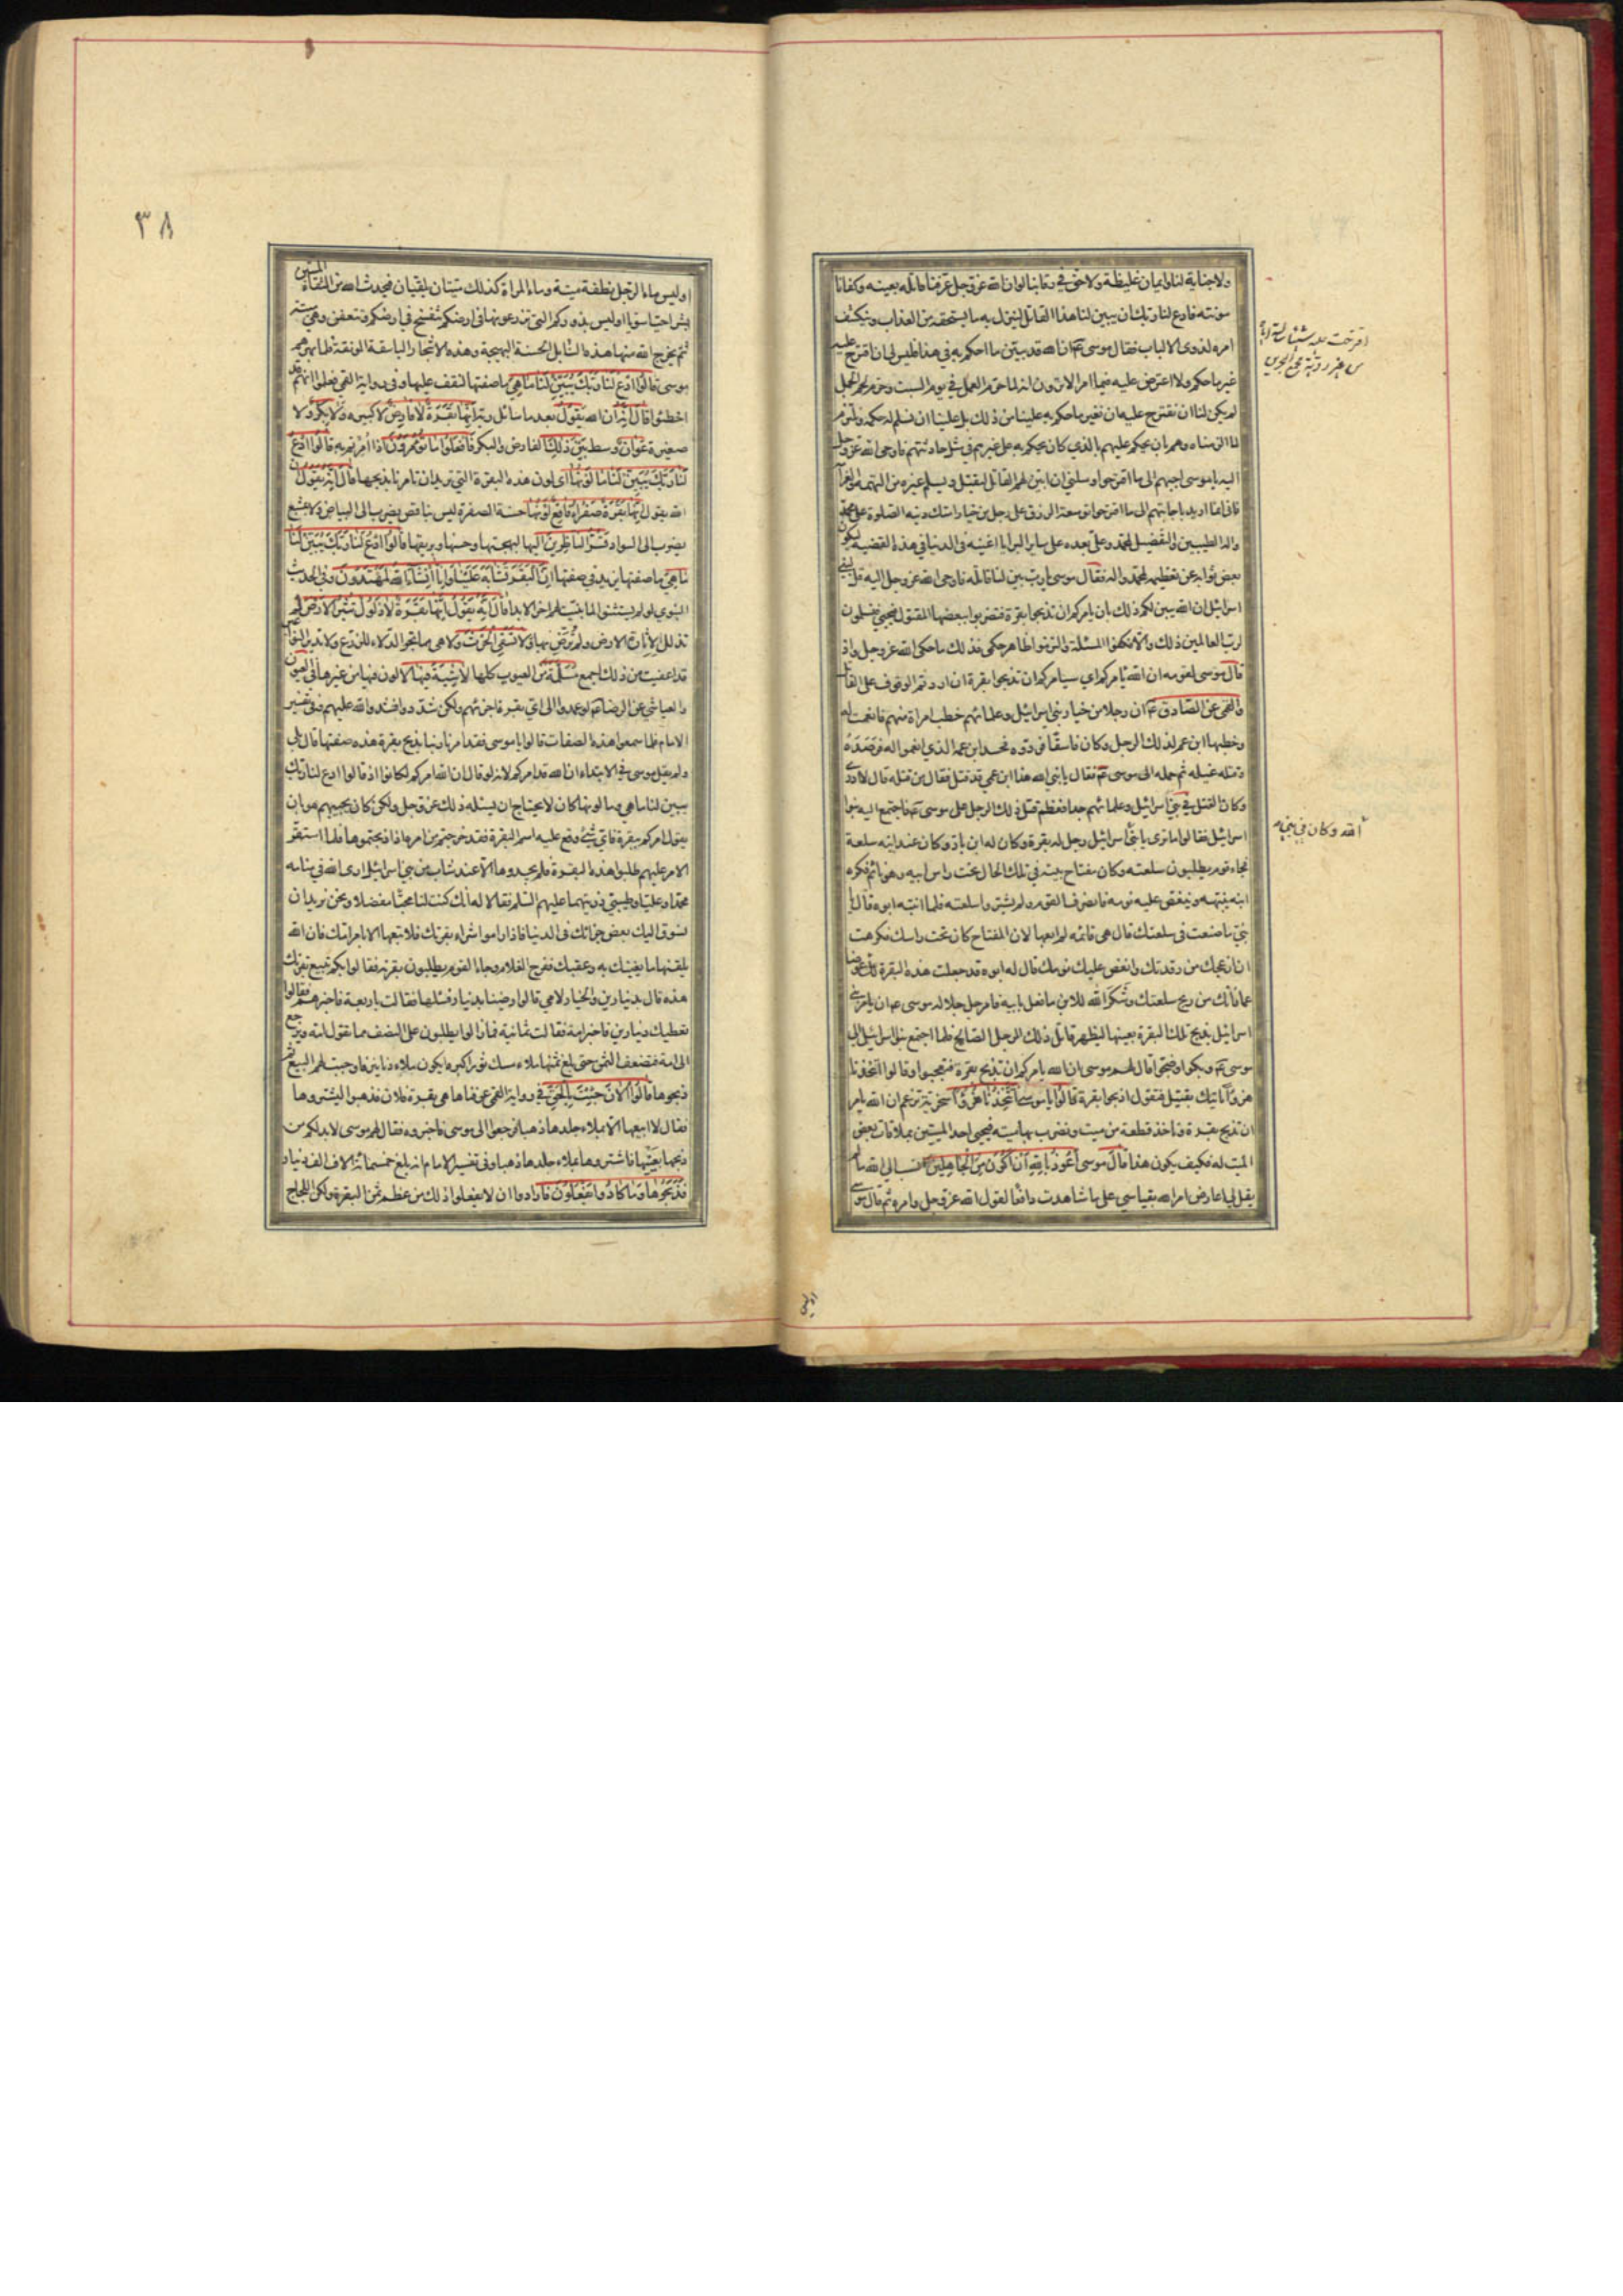 ولا جناية لنا وايمان غليظة ولا حق في رقابنا لو ان الله عز وجل عرفنا قاتله بعينه وكفانا
مؤنته فادع لنا ربك ان يبين لنا هذا القاتل لننزل به ما يستحقه من العذاب وينكشف
امره لذوي الالباب فقال موسى ع ان الله قد بين ما احكم به في هذا فليس لي ان اقترح عليه
غير ما حكم ولا اعترض عليه فيما امر الا ترون انه لما حرم العمل في يوم السبت وحرم لحم الجمل
لم يكن لنا ان نقترح عليه ان نغير ما حكم به علينا من ذلك بل علينا ان نسلم له حكمه ونلتزم
ما الزمناه وهم بان يحكم عليهم بالذي كان يحكم به على غيرهم في مثل حادثتهم فاوحى الله عز وجل
اليه يا موسى اجبهم الى ما اقترحوا وسلني ان ابين لهم القاتل ليقتل ويسلم غيره من التهمة والغرامة
فاني انما اريد باجابتهم الى ما اقترحوا توسعة الرزق على رجل من خيار امتك دينه الصلوة على محمد
واله الطيبين والتفضيل لمحمد وعلي بعده على ساير البرايا اغنيه في الدنيا في هذه القضية ليكون
بعض ثوابه عن تعظيمه لمحمد واله فقال موسى يا رب بين لنا قاتله فاوحى الله عز وجل اليه قل لبني
اسرائيل ان الله يبين لكم ذلك بان يامركم ان تذبحوا بقرة فتضربوا ببعضها المقتول فيحيى فتسلمون
لرب العالمين ذلك والا فكفوا المسئلة والتزموا ظاهر حكمي فذلك ما حكى الله عز وجل واذ
قال موسى لقومه ان الله يامركم اي سيامركم ان تذبحوا بقرة ان اردتم الوقوف على القاتل
والقمي عن الصادق ع ان رجلا من خيار بني اسرائيل وعلمائهم خطب امراة منهم فانعمت له
وخطبها ابن عم لذلك الرجل وكان فاسقا في دوه فحسد ابن عمه الذي انعموا له فرصده
وقتله غيلة ثم حمله الى موسى ع فقال يا نبي الله هذا ابن عمي قد قتل فقال من قتله قال لا ادري
وكان القتل في بني اسرائيل وعلمائهم جدا فعظم قتل ذلك الرجل على موسى ع فاجتمع اليه بنوا
اسرائيل فقالوا ما ترى يا نبي اسرائيل رجل له بقرة وكان له ابن بار وكان عند ابنه سلعة
فجاء قوم يطلبون سلعته وكان مفتاح بيته في تلك الحال تحت راس ابيه وهو نائم فكره
ابنه ينبهه وينغص عليه نومه فانصرف القوم ولم يشتروا سلعته فلما انتبه ابوه قال يا
بني ما صنعت في سلعتك قال هي قائمة لم ابعها لان المفتاح كان تحت راسك فكرهت
ان ازعجك من رقدتك وانغص عليك نومك قال له ابوه قد جعلت هذه البقرة لك عوضا
عما فاتك من ربح سلعتك وشكر الله للابن ما فعل بابيه فامر جل جلاله موسى ع ان يامر بني
اسرائيل بذبح تلك البقرة بعينها ليظهر قاتل ذلك الرجل الصالح فلما اجتمع بنو اسرائيل الى
موسى ع وبكوا وضجوا قال لهم موسى ان الله يامركم ان تذبحوا بقرة فتعجبوا وقالوا اتتخذنا
هزوا ناتيك بقتيل فتقول اذبحوا بقرة قالوا يا موسى أتتخذنا هزوا سخرية تزعم ان الله يامر
ان نذبح بقرة وناخذ قطعة من ميت ونضرب بها ميتا فيحيى احد الميتين بملاقات بعض
الميت له فكيف يكون هذا قال موسى أعوذ بالله أن أكون من الجاهلين انسب الى الله ما لم
يقل لي اعارض امر الله بقياسي على ما شاهدت دافعا لقول الله عز وجل وامره ثم قال موسى
الله وكان في بني
اوليس
٣٨
اوليس ماء الرجل نطفة ميتة وماء المراة كذلك ميتان يلتقيان فيحدث الله من التقاء الميتين
بشرا حيا سويا اوليس بذوركم التي تزرعونها في ارضكم تتفسخ في ارضكم وتتعفن وهي ميتة
ثم يخرج الله منها هذه السنابل الحسنة البهيجة وهذه الاشجار الباسقة المونقة فلما بهرهم
موسى قالوا ادع لنا ربك يبين لنا ما هي ما صفتها لنقف عليها وفي رواية القمي فعلموا انهم قد
اخطئوا قال إنه ان الله يقول بعد ما سائل ربه إنها بقرة لا فارض لا كبيرة ولا بكر ولا
صغيرة عوان وسط بين ذلك الفارض والبكر فافعلوا ما تؤمرون اذا امرتم به قالوا ادع
لنا ربك يبين لنا ما لونها اي لون هذه البقرة التي تريد ان تامرنا بذبحها قال إنه يقول ان
الله يقول إنها بقرة صفراء فاقع لونها حسنة الصفرة ليس بناقص يضرب الى البياض ولا مشبع
يضرب الى السواد تسر الناظرين اليها لبهجتها وحسنها وبريقها قالوا ادع لنا ربك يبين لنا
ما هي ما صفتها يزيد في صفتها إن البقر تشابه علينا وإنا إن شاء الله لمهتدون وفي الحديث
النبوي لو لم يستثنوا لما بينت لهم اخر الابد قال إنه يقول إنها بقرة لا ذلول تثير الارض لم
تذلل لاثارة الارض ولم ترض بها ولا تسقي الحرث ولا هي مما تجر الدلاء للزرع ولا تدير النواعير
قد اعفيت من ذلك اجمع مسلمة من العيوب كلها لا شية فيها لا لون فيها من غيرها في العيون
والعياشي عن الرضا ع لو عمدوا الى اي بقرة اجزئتهم ولكن شددوا فشدد الله عليهم وفي تفسير
الامام فلما سمعوا هذه الصفات قالوا يا موسى فقد امرنا ربنا بذبح بقرة هذه صفتها قال بلى
ولم يقل موسى في الابتداء ان الله قد امركم لانه لو قال ان الله امركم لكانوا اذ قالوا ادع لنا ربك
يبين لنا ما هي وما لونها كان لا يحتاج ان يسئله ذلك عز وجل ولكن كان يجيبهم هو بان
يقول امركم ببقرة فاي شيء وقع عليه اسم البقرة فقد خرجتم من امره اذا ذبحتموها فلما استقر
الامر عليهم طلبوا هذه البقرة فلم يجدوها الا عند شاب من بني اسرائيل ارى الله في منامه
محمدا وعليا وطيبي ذريتهما عليهم السلم فقالا له انك كنت لنا محبا مفضلا ونحن نريد ان
نسوق اليك بعض جزائك في الدنيا فاذا راموا شراء بقرتك فلا تبعها الا بامر امك فان الله
يلقنها ما يغنيك به وعقبك ففرح الغلام وجاء القوم يطلبون بقرته فقالوا بكم تبيع بقرتك
هذه قال بدينارين والخيار لامي قالوا رضينا بدينار فسئلها فقالت باربعة فاخبرهم فقالوا
نعطيك دينارين فاخبر امه فقالت ثمانية فما زالوا يطلبون على النصف مما تقول امه ويرجع
الى امه فتضعف الثمن حتى بلغ ثمنها ملاء مسك ثور اكبر ما يكون ملاءه دنانير فاوجبت لهم البيع ثم
ذبحوها قالوا الآن جئت بالحق في رواية القمي عرفناها هي بقرة فلان فذهبوا ليشتروها
فقال لا ابيعها الا بملاء جلدها ذهبا فرجعوا الى موسى فاخبروه فقال لهم موسى لا بد لكم من
ذبحها بعينها فاشتروها بملاء جلدها ذهبا وفي تفسير الامام انه بلغ خمسمائة الاف الف دينار
فذبحوها وما كادوا يفعلون فارادوا ان لا يفعلوا ذلك من عظم ثمن البقرة ولكن اللجاج